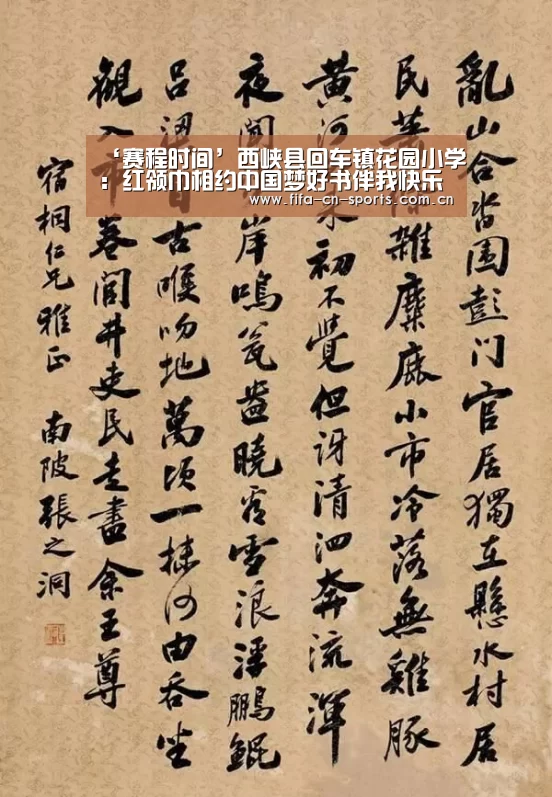 ‘赛程时间’西峡县回车镇花园小学
：红领巾相约中国梦好书伴我快乐
www.fifa-cn-sports.com.cn
亂山合沓圍彭门官居獨在懸水村居
民雜麋鹿小市冷落無雞豚
黄河初不覺但訝清泗奔流渾
夜岸鳴瓮盎曉看雪浪浮鵬鯤
吕古喉吻地萬頃一抹何由吞坐
觀入卷閭井吏民走盡余王尊
宿桐仁兄雅正 南陂張之洞